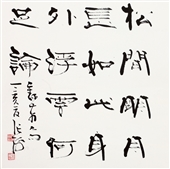 松間明月
長如此身
外浮雲何
足論